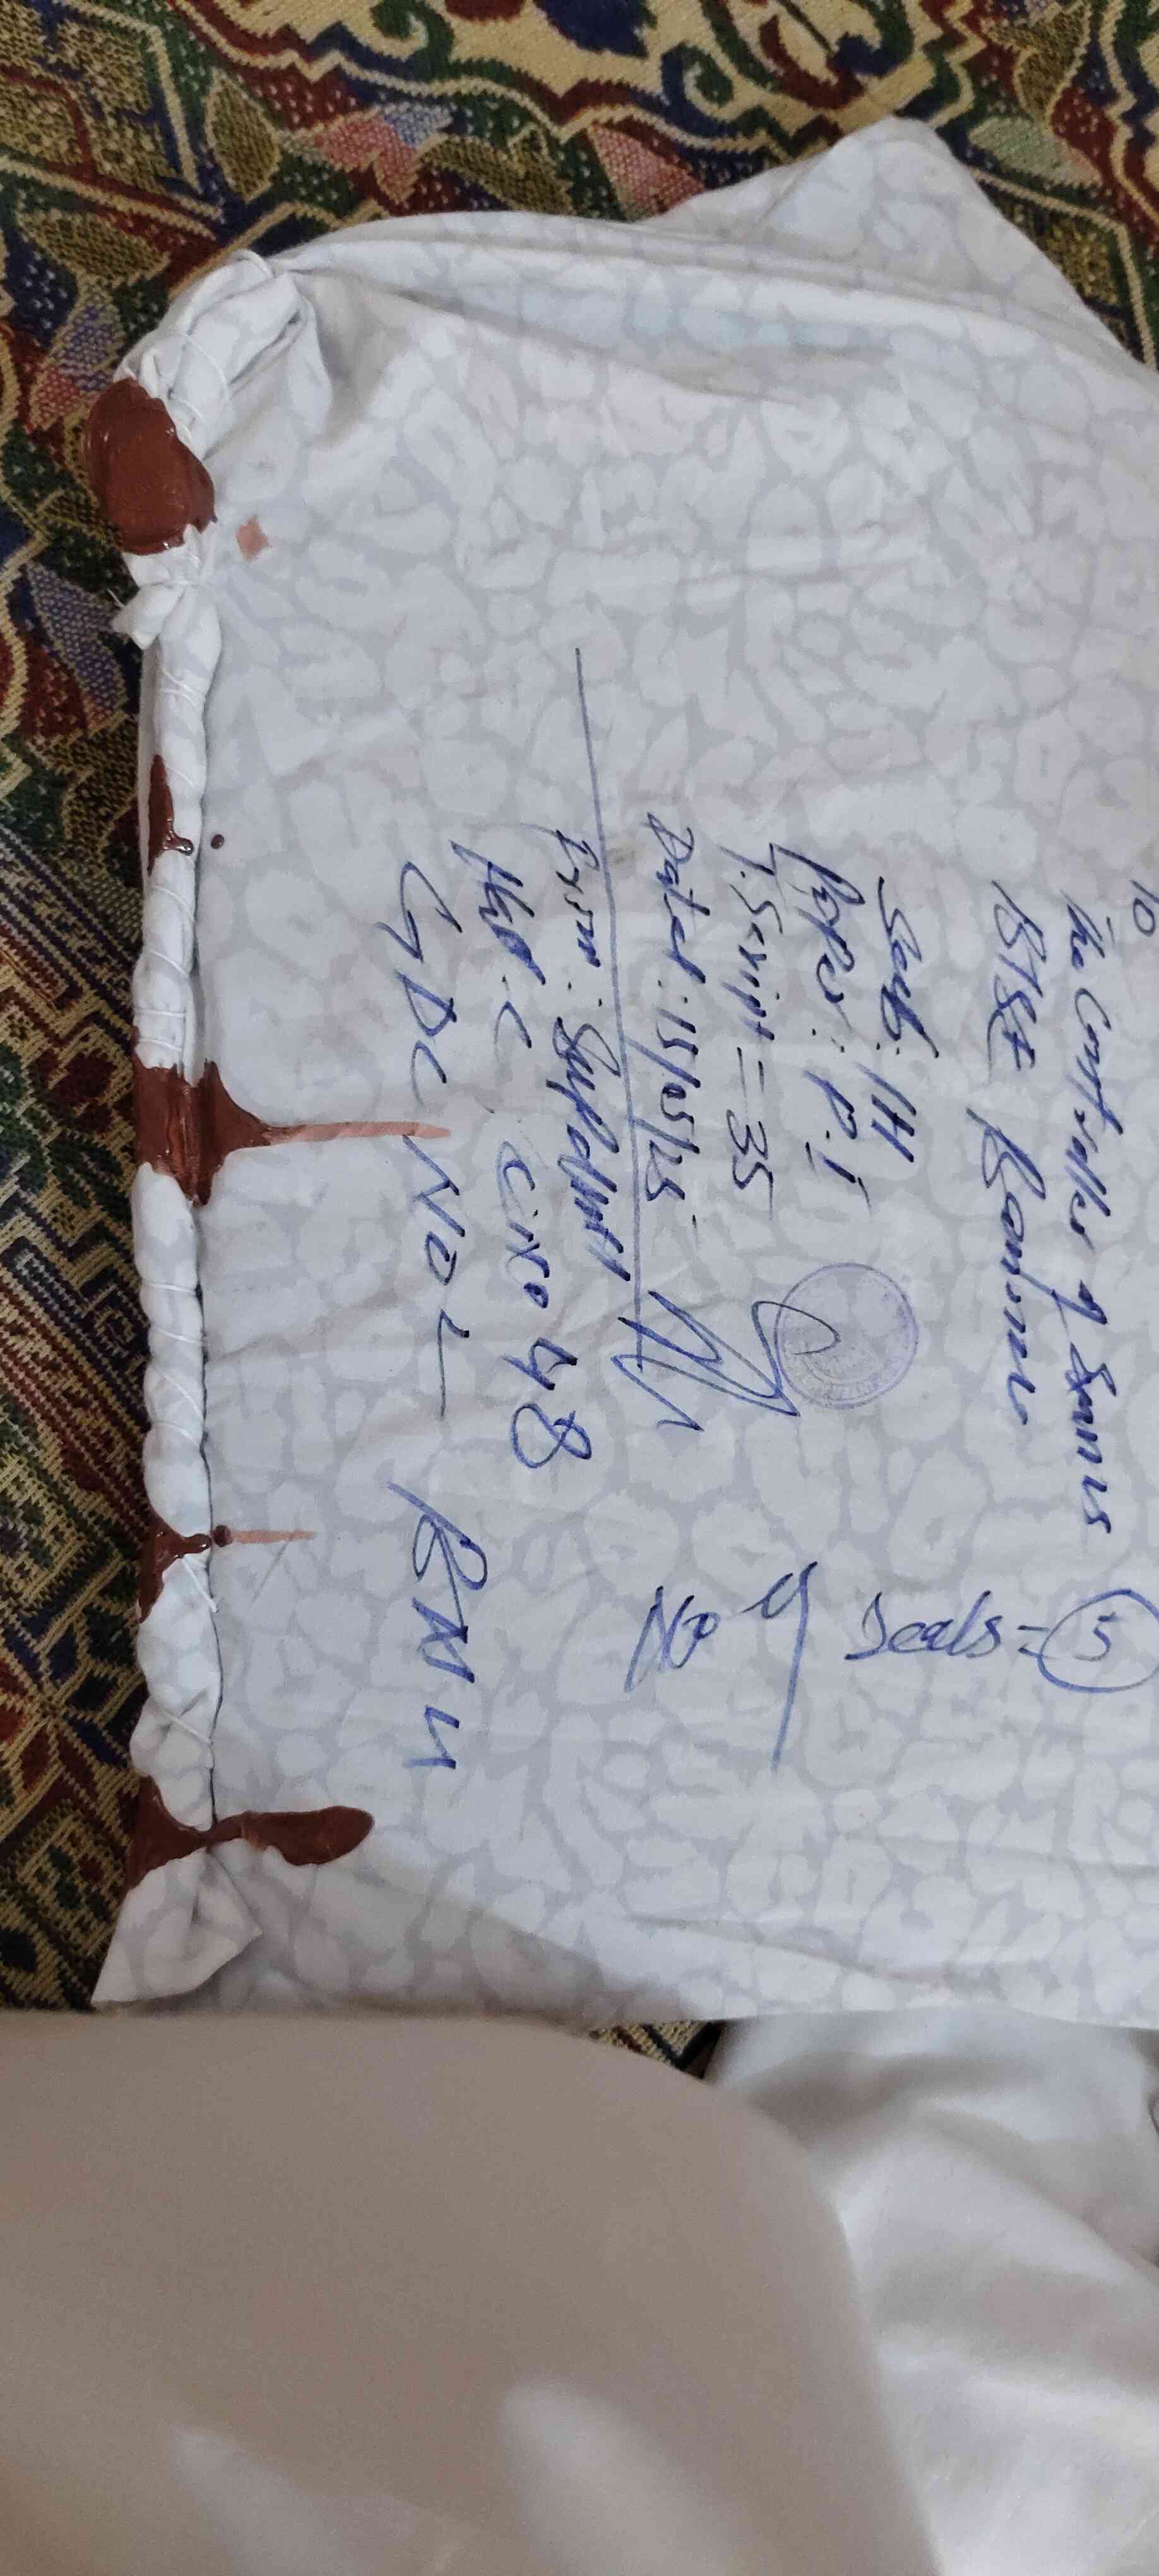 To
The Controller of Exams
BISE Bannu
Sub: IH
Paper: P.I
T. Script = 35
Dated: 15/05/25
No of Seals = 5
From: Supdtt
C. No 48
GDC No 1 BNU